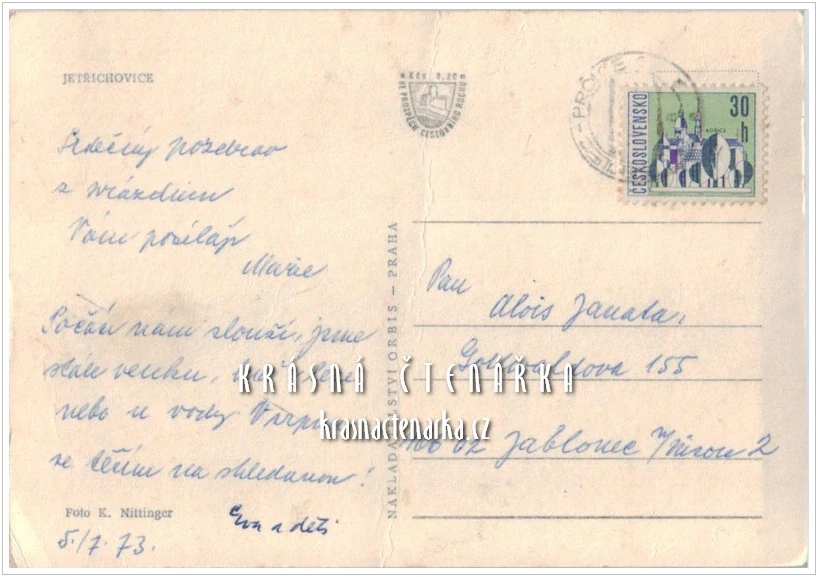 JETŘICHOVICE
Kčs 0,20
VE PROSPĚCH CESTOVNÍHO RUCHU
ČESKOSLOVENSKO
30 h
KOŠICE
Srdečný pozdrav
z prázdnin
Vám posílají
Marie
Počasí nám slouží, jsme
stále venku, buď
nebo u vody. V srpnu
se těším na shledanou!
Eva a děti
Foto K. Nittinger
5./7. 73.
NAKLADATELSTVÍ ORBIS – PRAHA
Pan
Alois Janata,
Gottwaldova 155
466 02 Jablonec n/Nisou 2
KRÁSNÁ ČTENÁŘKA
krasnactenarka.cz